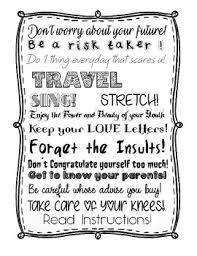 Don't worry about your future!
Be a risk taker !
Do 1 thing everyday that scares u!
TRAVEL
SING! STRETCH!
Enjoy the Power and Beauty of your Youth!
Keep your LOVE Letters!
Forget the Insults!
Don't Congratulate yourself too much!
Get to know your parents!
Be careful whose advise you buy!
TAKE CARE OF YOUR KNEES!
Read Instructions!